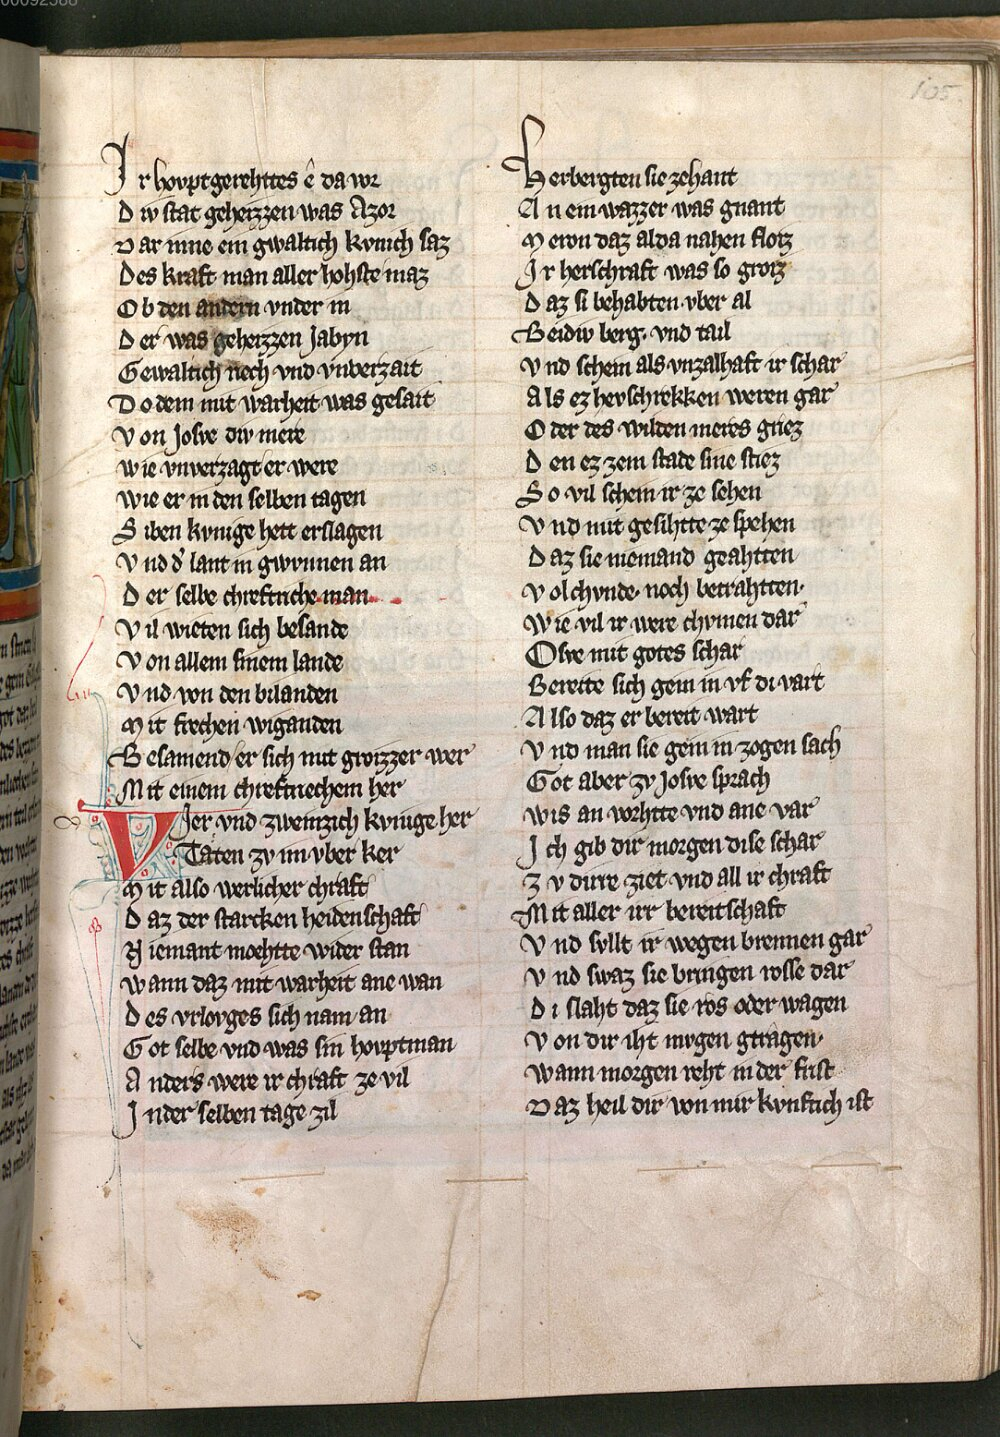 00092588
105.
Ir hovptgerehttes ê da wz
Div stat geheizzen was Azor
Dar inne ein gwaltich kvnich saz
Des kraft man aller hohste maz
Ob den andern vnder in
Der was geheizzen Jabyn
Gewaltich riech vnd vnverzait
Do dem mit warheit was gesait
Von Josve div mere
wie vnverzagt er were
wie er in den selben tagen
Siben kvnige hett erslagen
Vnd d' lant in gwvnnen an
Der selbe chreftriche man
Vil wieten sich besande
Von allem sinem lande
Vnd von den bilanden
Mit frechen wiganden
Besamend er sich mit groizzer wer
Mit einem chreftriechem her
Vier vnd zweinzich kvnige her
Taten zv im vber ker
Mit also werlicher chraft
Daz der starcken heidenschaft
Niemant moehtte wider stan
wann daz mit warheit ane wan
Des vrlovges sich nam an
Got selbe vnd was sin hovptman
Anders were ir chraft ze vil
In der selben tage zil
Herbergten sie zehant
An ein wazzer was gnant
Meron daz alda nahen flotz
Ir herschraft was so groiz
Daz si behabten vber al
Beidiv berg. vnd tail
Vnd schein als vnzalhaft ir schar
Als ez hevschrekken weren gar
Oder des wilden meres griez
Den ez zem stade sine stiez
So vil schein ir ze sehen
Vnd mit gesihtte ze spehen
Daz sie niemand geahtten
Vol chvnde. noch betrahtten.
Wie vil ir were chvmen dar
Osve mit gotes schar
Bereite sich gein in vf di vart
Also daz er bereit wart
Vnd man sie gein in zogen sach
Got aber zv Josve sprach
wis an vorhtte vnd ane var
Ich gib dir morgen dise schar
Zv dirre ziet vnd all ir chraft
Mit aller irr bereitschaft
Vnd svllt ir wegen brennen gar
Vnd swaz sie bringen rosse dar
Di slaht daz sie ros oder wagen
Von dir iht mvgen gtragen.
wann morgen reht in der frist
Daz heil dir von mir kvnftich ist